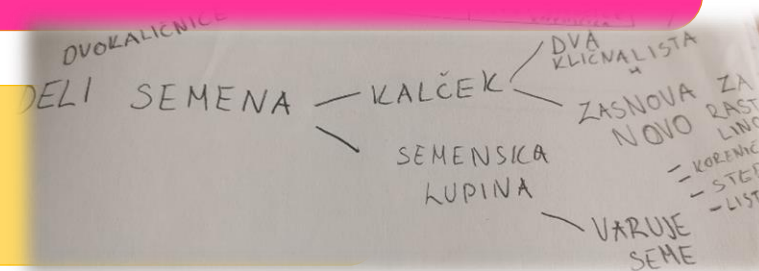 DVOKALIČNICE
DELI SEMENA
KALČEK
DVA
KLIČNA LISTA
ZASNOVA ZA
NOVO RAST
LINO
- KORENIČ
- STEB
- LIST
SEMENSKA
LUPINA
VARUJE
SEME